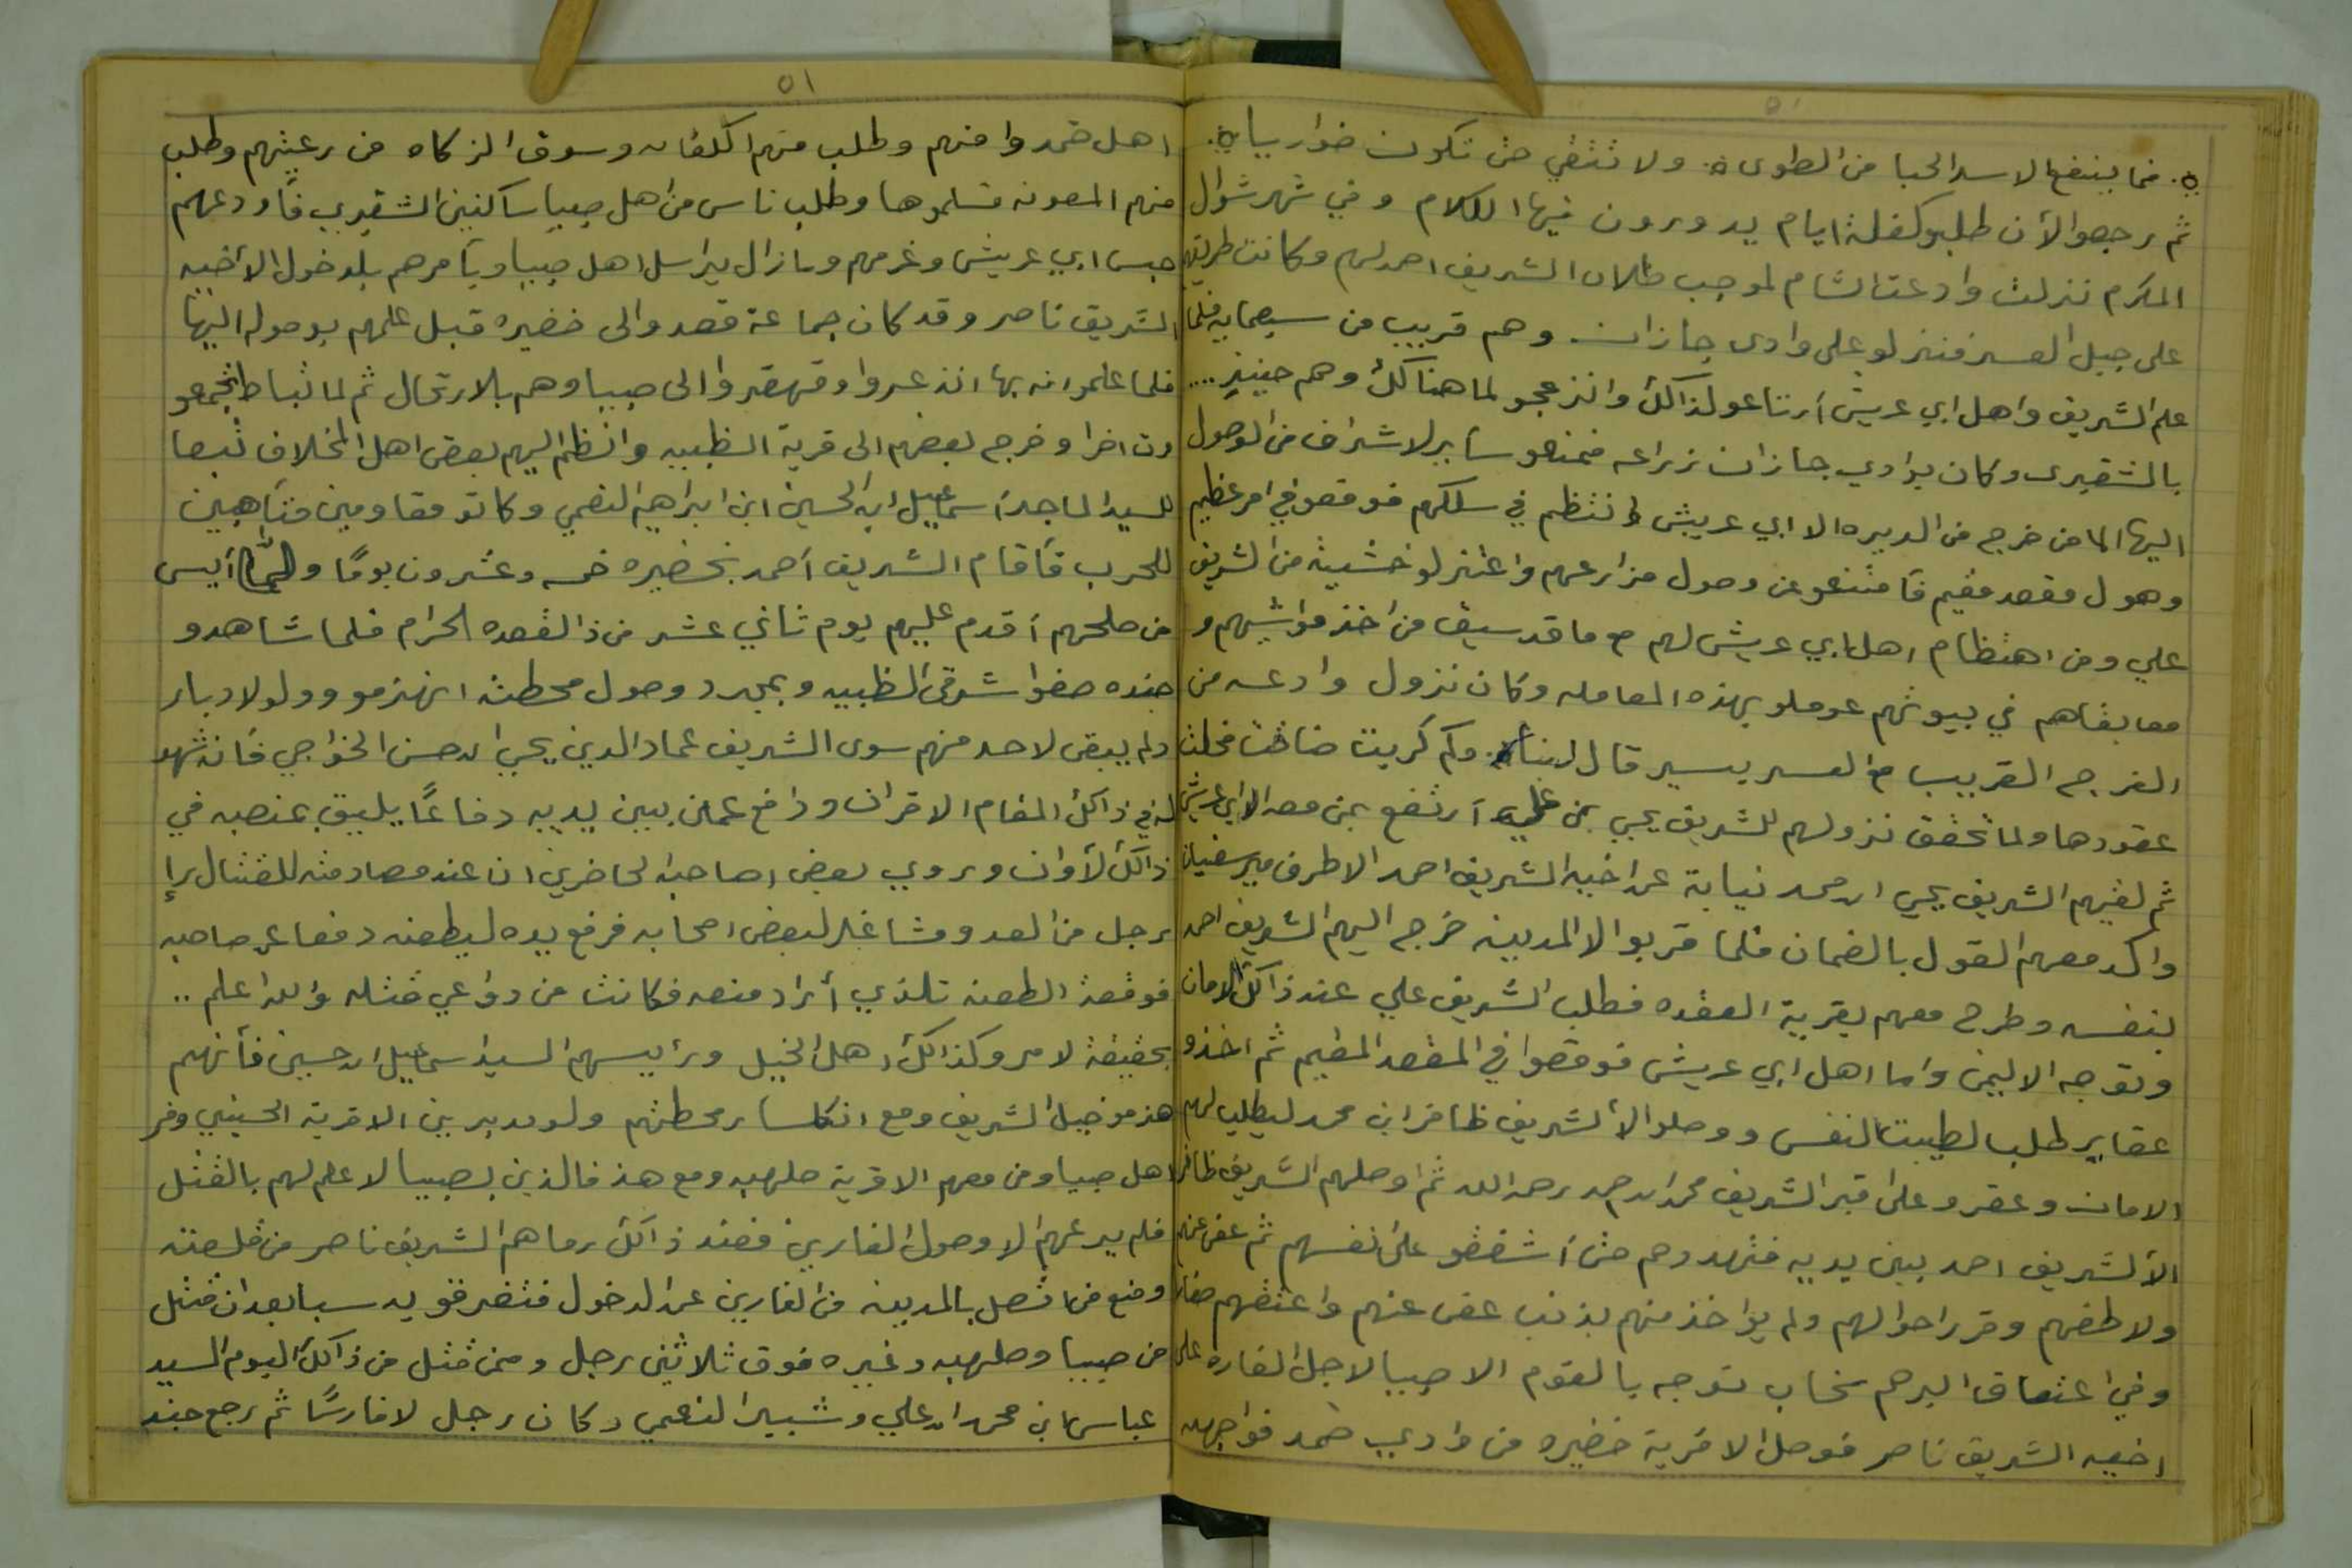 ٥٠
فما ينفع الاسد الحيا من الطوى ولا تتقي حتى تكون ضواريا
ثم رجعوا الأن طلبو كفلة ايام يدورون فيها الكلام وفي شهر شوال
المكرم نزلت وادعت الشام لموجب طلاب الشريف احمد لهم وكانت طريقهم
على جبل العسر فنزلو على وادى جازان وهم قريب من سبعمايه فلما
علم الشريف واهل ابي عريش أرتاعو لذالك وانزعجو لما هنالك وهم حينيذٍ ....
بالشقيرى وكان بوادي جازان زراعه فمنعو ساير لاشراف من الوصول
اليها الا من خرج من الديره الا ابي عريش وانتظم في سلكهم فوقعو في امر عظيم
وهول مقعد مقيم فأمتنعو عن وصول مزارعهم واعتزلو خشيةً من الشريف
علي ومن اهتظام اهل ابي عريش لهم مع ما قد سبق من اخذ مواشيهم و
معابقاهم في بيوتهم عوملو بهذه المعامله وكان نزول وادعه من
الفرج القريب مع العسر يسير قال وكم كربت ضاقت فحلت
عقودها ولما تحقق نزولهم للشريف يحيى بن علي أرتفع بمن معه الا ابي عريش
ثم لقيهم الشريف يحيى ابن محمد نيابة عن اخيه الشريف احمد الاطرف مير سفيان
واكد معهم القول بالضمان فلما قربوا الا المدينه خرج اليهم الشريف احمد
بنفسه وطرح معهم بقرية العقده فطلب الشريف علي عند ذالك الامان
وتوجه الا ليمن واما اهل ابي عريش فوقعوا في المقعد المقيم ثم اخذو
عقاير طلب لطيبت النفس ووصلو الأ لشريف ظافر ابن محمد ليطلب لهم
الامان وعقرو على قبر الشريف محمد ابن احمد رحمه الله ثم اوصلهم الشريف ظافر
الأ لشريف احمد بين يديه فتهددهم حتى أشفقو على نفسهم ثم عفى عنهم
ولاطفهم وقرر احوالهم ولم يؤاخذ منهم بذنب عفى عنهم واعتقهم
وفي اعتقاق البرهم سخاب توجه بالقوم الا صبيا لاجل الغاره على
اخيه الشريف ناصر فوصل الا قرية خضيره من وادي ضمد فواجهه
٥١
اهل ضمد وامنهم وطلب منهم الكلفات وسوق الزكاه من رعيتهم وطلب
منهم المعونه فسلموها وطلب ناس من اهل صبيا ساكنين الشقيرى فأودعهم
حبس ابي عريش وغرمهم ومازال يراسل اهل صبيا ويأمرهم بلدخول الا أخيه
الشريف ناصر وقد كان جماعة قصدوالى خضيره قبل علمهم بوصوله اليها
فلما علموانه بها انذعروا وقهقروا الى صبيا وهم بالارتحال ثم لما تباطا تجمعو
دت اخرا وخرج بعضهم الى قرية الظبيه وانظم اليهم بعض اهل المخلاف تبعا
للسيد الماجد أسماعيل ابن الحسين ابن ابراهيم النعمي وكانو مقاومين متأهبين
للحرب فأقام الشريف أحمد بخضيره خمسه وعشرون يومًا ولما أيس
من صلحهم أقدم عليهم يوم ثاني عشر من ذالقعده الحرام فلما شاهدو
جنده صفوا شرقى الظبيه وبمجرد وصول محطته انهزمو وولو لادبار
ولم يبقى لاحد منهم سوى الشريف عماد الدين يحيى ابن حسن الخواجي فانه شهد
له في ذالك المقام الاقران ودافع عمن بين يديه دفاعًا يليق بمنصبه في
ذالك لأوان وروي بعض اصاحبه لحاضرين ان عند مصادمته للقتال رإ
رجل من العدو مشاغل لبعض اصحابه فرفع يده ليطعنه دفعا عن صاحبه
فوقعة الطعنه تلذي أراد منعه فكانت من دواعي قتله والله اعلم ..
بحقيقة لامر وكذالك اهل الخيل ورأيسهم السيد اسماعيل ابن حسين فأنهم
هزمو خيل الشريف ومع انكسار محطتهم ولو مدبرين الا قرية الحسيني وفر
اهل صبيا ومن معهم الا قرية صلهبه ومع هذ فالذين بصبيا لا علم لهم بالقتل
فلم يرعهم الا وصول الغارين فعند ذالك رماهم الشريف ناصر من قلعته
ومنع من اتصل بالمدينه من الغارين عن الدخول فتفرقو يد سبا بعدان قتل
من صبيا وصلهبه وغيره فوق ثلاثين رجل وممن قتل من ذالك اليوم السيد
عباس ابن محمد ابن علي وشبير النعمي وكان رجل لافارسًا ثم رجع جند